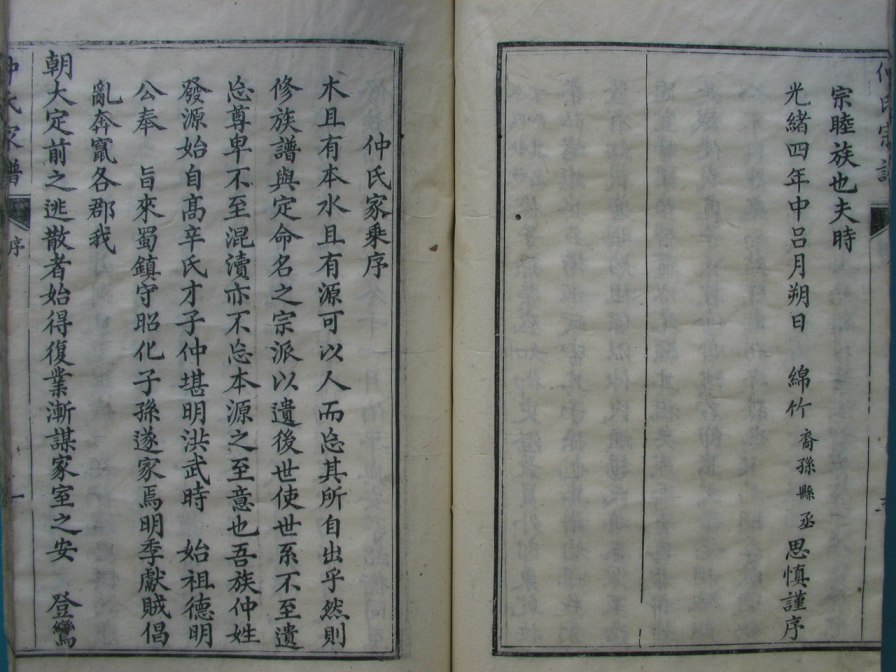 宗睦族也夫時
光緒四年中呂月朔日　綿竹　裔孫縣丞　思慎謹序
仲氏家乘序
木且有本水且有源可以人而忘其所自出乎然則
修族譜與定命名之宗派以遺後世使世系不至遺
忘尊卑不至混瀆亦不忘本源之至意也吾族仲姓
發源始自高辛氏才子仲堪明洪武時　始祖德明
公奉　旨來蜀鎮守昭化子孫遂家焉明季獻賊倡
亂奔竄各郡我
朝大定前之逃散者始得復業漸謀家室之安　登鸞
仲氏家譜
序
一